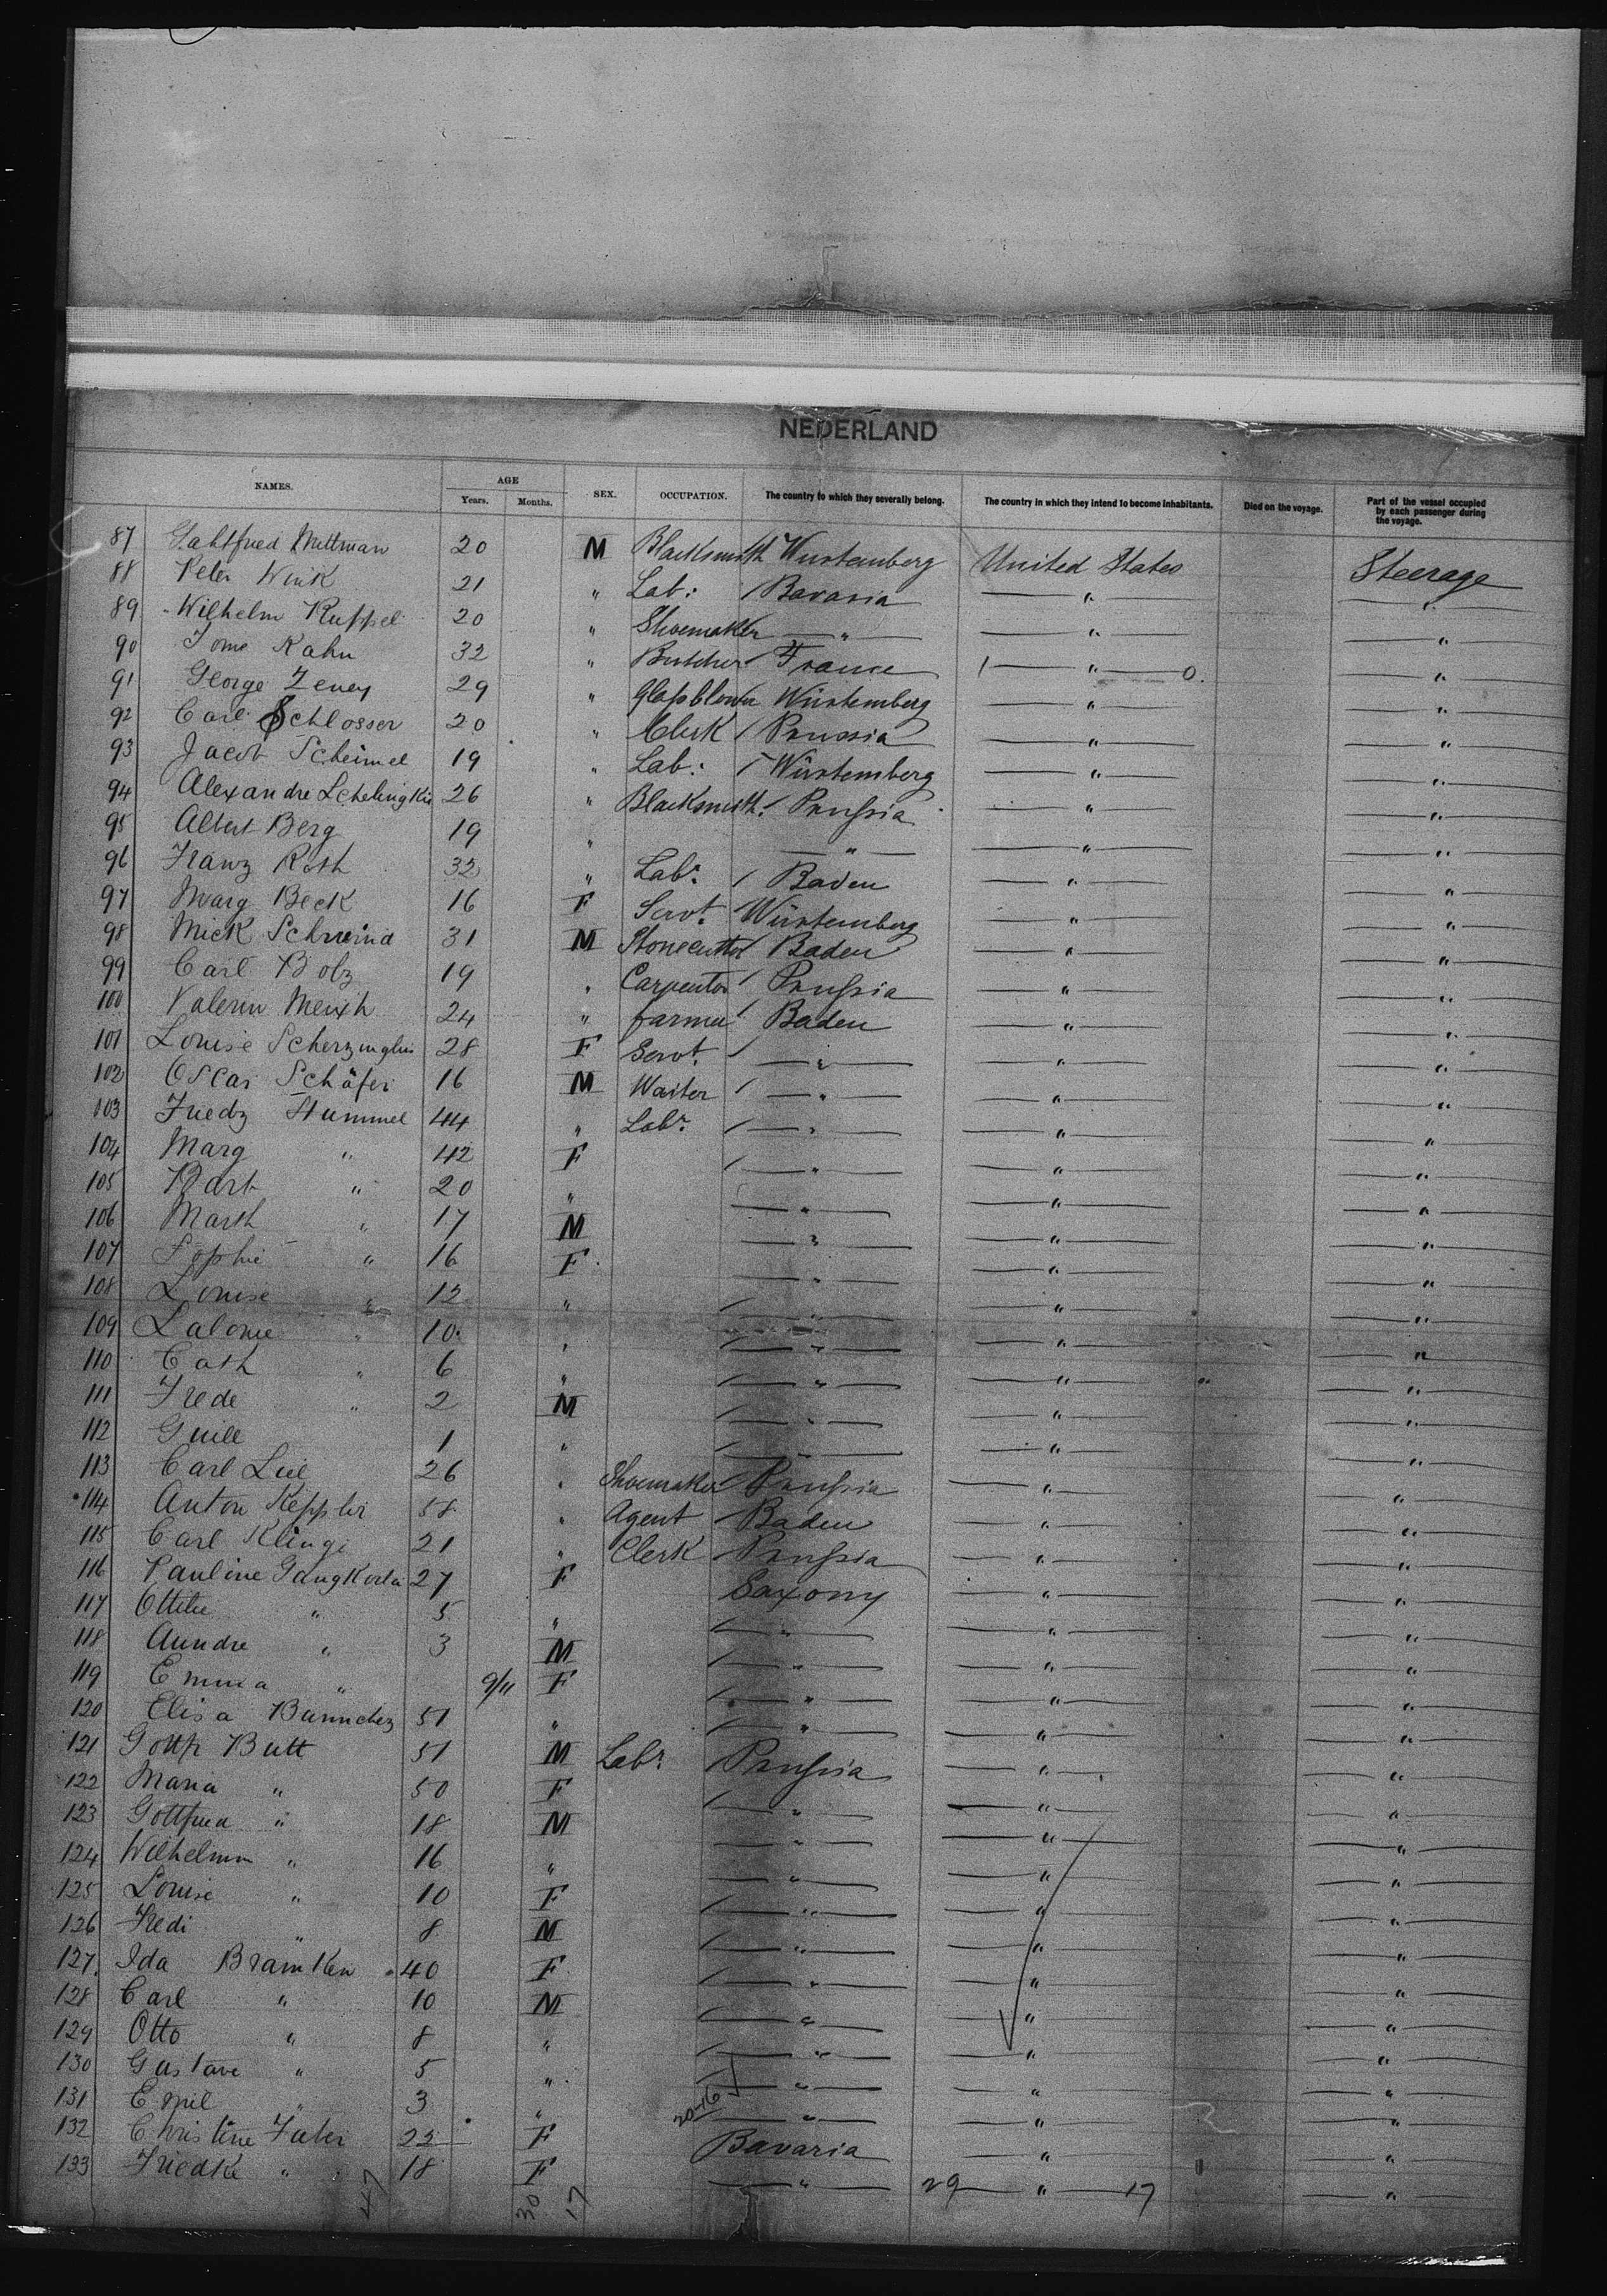 NEDERLAND
NAMES. AGE Years. Months. SEX. OCCUPATION. The country to which they severally belong. The country in which they intend to become inhabitants. Died on the voyage. Part of the vessel occupied by each passenger during the voyage.
87 Mittman 20 M Blacksmith Wurtemberg United States Steerage
88 Peter Wink 21 " Lab: Bavaria " "
89 Wilhelm Ruppel 20 " Shoemaker " " "
90 Kahn 32 " Butcher France " 0. "
91 George Zeney 29 " Glassblower Würtemberg " "
92 Carl Schlosser 20 " Clerk Prussia " "
93 Jacob Scheimel 19 " Lab: Würtemberg " "
94 Alexandre 26 " Blacksmith Prussia " "
95 Albert Berg 19 " " " "
96 Franz Roth 32 " Labr. Baden " "
97 Marg Beck 16 F Servt. Würtemberg " "
98 Mick Schwind 31 M Stonecutter Baden " "
99 Carl Bolz 19 " Carpenter Prussia " "
100 24 " Farmer Baden " "
101 Louise 28 F Servt. " " "
102 Oscar Schäfer 16 M Waiter " " "
103 Friedz Hummel 44 " Labr. " " "
104 Marg " 42 F " " "
105 Barb " 20 " " " "
106 Marth " 17 M " " "
107 Sophie " 16 F " " "
108 Louise " 12 " " " "
109 " 10 " " " "
110 Cath " 6 " " " "
111 Frede " 2 M " " "
112 Guill 1 " " " "
113 Carl 26 " Shoemaker Prussia " "
114 Anton Keppler 58 " Agent Baden " "
115 Carl Klinge 21 " Clerk Prussia " "
116 Pauline 27 F Saxony " "
117 Ottilie " 5 " " " "
118 Aundre " 3 M " " "
119 Emma " 9/11 F " " "
120 Elisa 51 " " " "
121 Gottp Butt 51 M Labr. Prussia " "
122 Maria " 50 F " " "
123 Gottfried " 18 M " " "
124 Wilhelmm " 16 " " " "
125 Louise " 10 F " " "
126 Fredi " 8 M " " "
127. Ida Bramken 40 F " " "
128 Carl " 10 M " " "
129 Otto " 8 " " " "
130 Gustave " 5 " " " "
131 Emil " 3 " " " "
132 Christine Fater 22 F Bavaria " "
133 Friedke " 18 F " 29 " 17 "
47 30 17